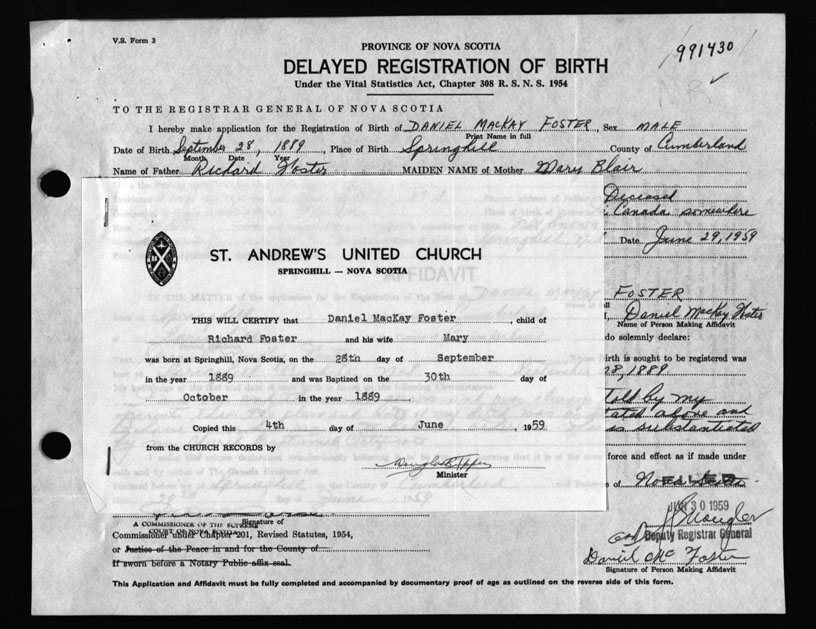 V.S. Form 3
991430
PROVINCE OF NOVA SCOTIA
DELAYED REGISTRATION OF BIRTH
Under the Vital Statistics Act, Chapter 308 R. S. N. S. 1954
TO THE REGISTRAR GENERAL OF NOVA SCOTIA
I hereby make application for the Registration of Birth of DANIEL MACKAY FOSTER, Sex MALE
Print Name in full
Date of Birth September 28, 1889, Place of Birth Springhill County of Cumberland
Month Date Year
Name of Father Richard Foster MAIDEN NAME of Mother Mary Blair
Deceased
Canada somewhere
Date June 29, 1959
ST. ANDREW'S UNITED CHURCH
SPRINGHILL — NOVA SCOTIA
AFFIDAVIT
FOSTER
THIS WILL CERTIFY that Daniel MacKay Foster, child of
Daniel MacKay Foster
Name of Person Making Affidavit
Richard Foster and his wife Mary
do solemnly declare:
was born at Springhill, Nova Scotia, on the 28th day of September
Birth is sought to be registered was
in the year 1889 and was Baptized on the 30th day of
28, 1889
October in the year 1889
told by my
stated above and
Copied this 4th day of June, 1959
is substantiated
from the CHURCH RECORDS by
force and effect as if made under
Minister
of
JUN 30 1959
Signature of
A COMMISSIONER OF THE SUPREME
COURT OF NOVA SCOTIA
Commissioner under Chapter 201, Revised Statutes, 1954,
Deputy Registrar General
or Justice of the Peace in and for the County of
Daniel Mc Foster
If sworn before a Notary Public affix seal.
Signature of Person Making Affidavit
This Application and Affidavit must be fully completed and accompanied by documentary proof of age as outlined on the reverse side of this form.